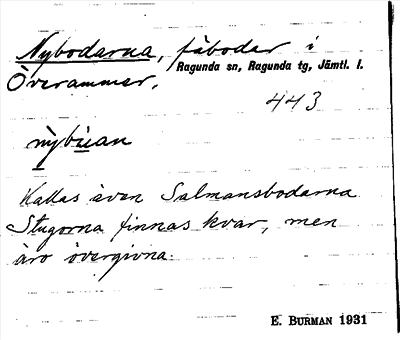 Nybodarna, fäbodar i
Ragunda sn, Ragunda tg, Jämtl. l.
Överammer.
443
nỳbùan
Kallas även Salmansbodarna
Stugorna finnas kvar, men
äro övergivna.
E. BURMAN 1931